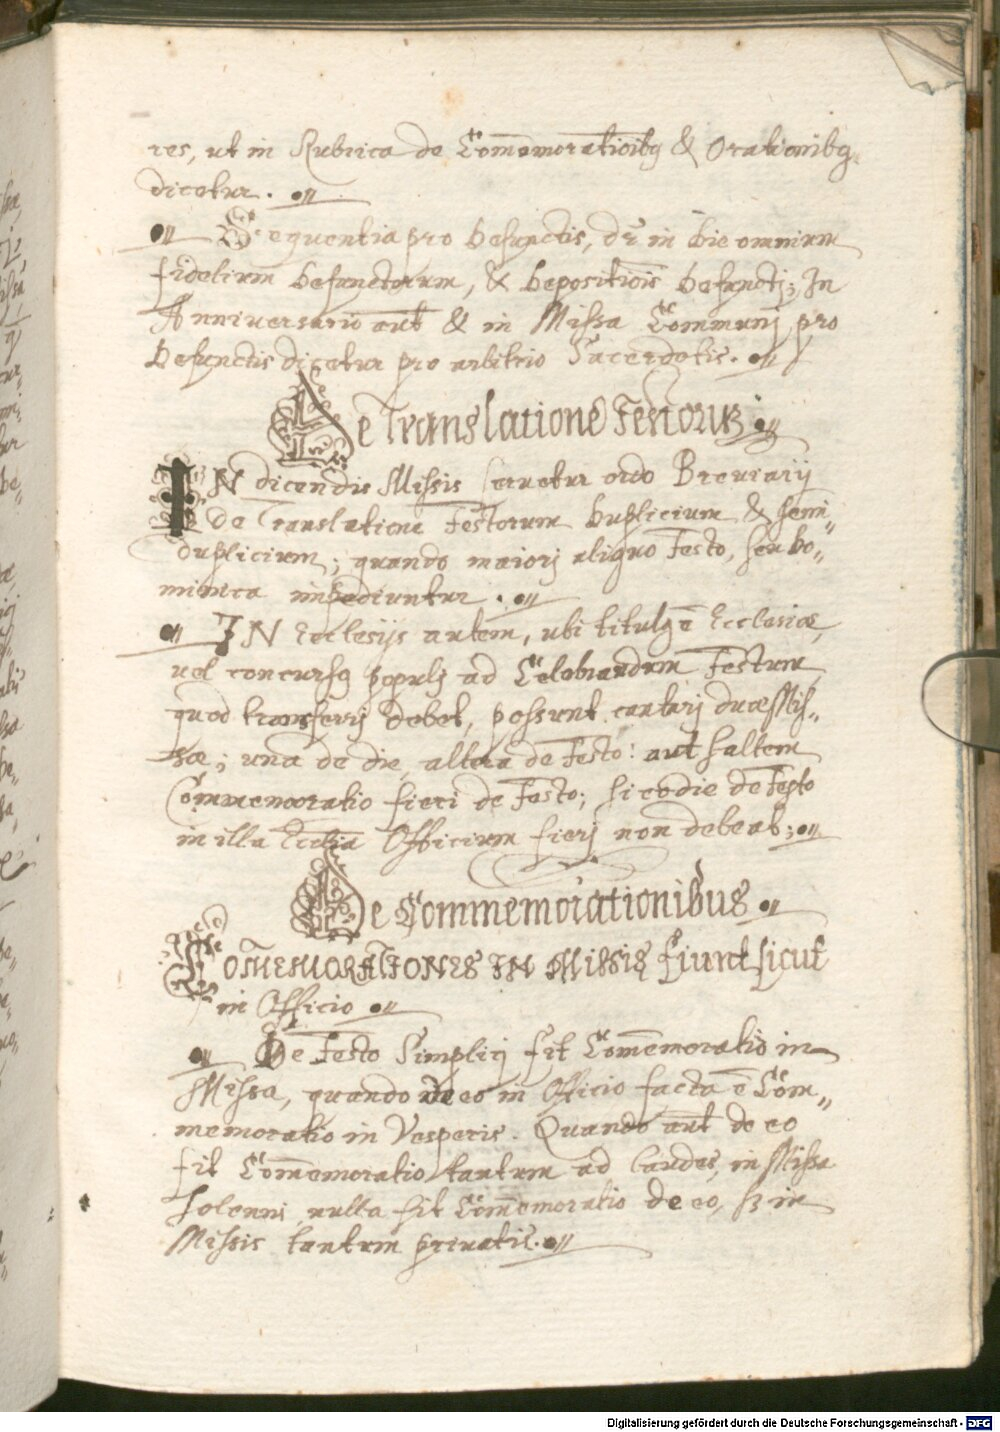 res, ut in Rubrica de Com̄emorationibꝯ & Orationibꝯ
dicetur.
Sequentia pro Defunctis, dr̄ in die omnium
fidelium Defunctorum, & Depositiōis Defunctj; In
Anniversario aut̄ & in Missa Communj pro
Defunctis dicetur pro arbitrio Sacerdotis.
De Translatione Festorum
IN dicendis Missis servetur ordo Breviarij
de Translatione Festorum Duplicium & Semi„
duplicium; quando maiorj aliquo Festo, seu Do„
minica impediuntur.
IN Ecclesijs autem, ubi titulꝯ ē Ecclesiæ,
vel concursꝯ populj ad Celebrandum Festum
quod transferrj debet, possunt cantarj duæ Mis„
sæ; una de die, altera de Festo: aut saltem
Commemoratio fieri de Festo; si eo die de Festo
in illa Ecclīa Officium fierj non debeat;
De Commemorationibus
COM̄EMORATIONES IN Missis fiunt sicut
in Officio
De Festo Simplicj fit Com̄emoratio in
Missa, quando de eo in Officio facta ē Com„
memoratio in Vesperis. Quando aut̄ de eo
fit Com̄emoratio tantum ad Laudes, in Missa
Solenni nulla fit Com̄emoratio de eo, sꝫ in
Missis tantum privatis.
Digitalisierung gefördert durch die Deutsche Forschungsgemeinschaft - DFG